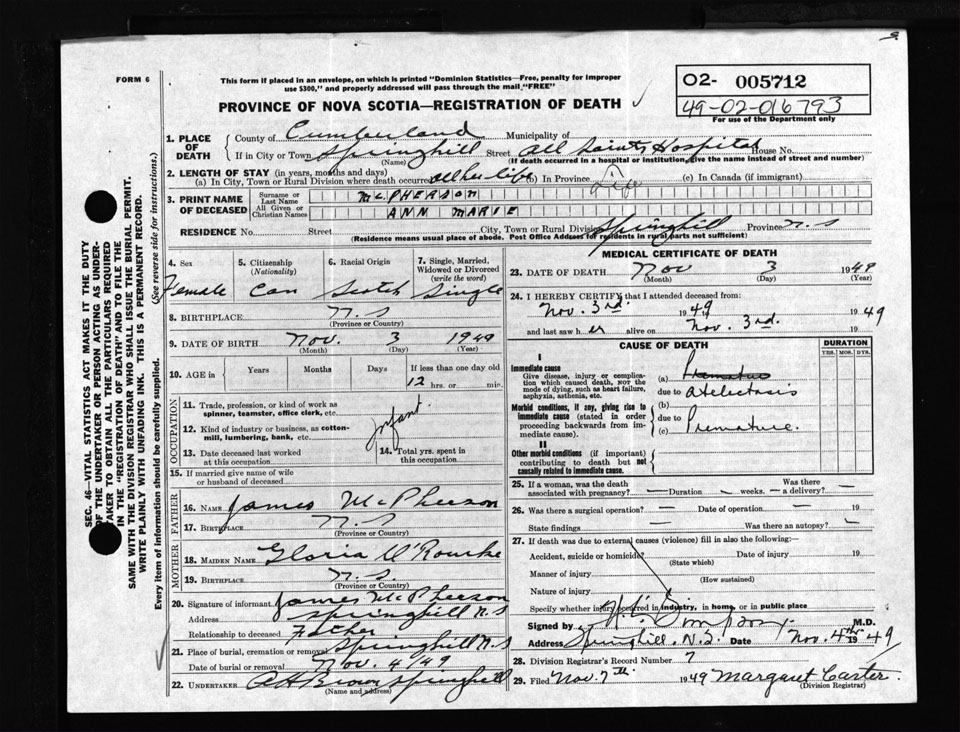 FORM 6
This form if placed in an envelope, on which is printed "Dominion Statistics—Free, penalty for improper
use $300," and properly addressed will pass through the mail "FREE"
PROVINCE OF NOVA SCOTIA—REGISTRATION OF DEATH
02- 005712
49-02-016793
For use of the Department only
SEC. 46—VITAL STATISTICS ACT MAKES IT THE DUTY
OF THE UNDERTAKER OR PERSON ACTING AS UNDER-
TAKER TO OBTAIN ALL THE PARTICULARS REQUIRED
IN THE "REGISTRATION OF DEATH" AND TO FILE THE
SAME WITH THE DIVISION REGISTRAR WHO SHALL ISSUE THE BURIAL PERMIT.
WRITE PLAINLY WITH UNFADING INK. THIS IS A PERMANENT RECORD.
Every item of information should be carefully supplied. (See reverse side for instructions.)
1. PLACE OF DEATH County of Cumberland Municipality of
If in City or Town Springhill Street All Saints Hospital House No.
(Name) (If death occurred in a hospital or institution, give the name instead of street and number)
2. LENGTH OF STAY (in years, months and days)
(a) In City, Town or Rural Division where death occurred all her life (b) In Province Life (c) In Canada (if immigrant)
3. PRINT NAME OF DECEASED Surname or Last Name McPHERSON
All Given or Christian Names ANN MARIE
RESIDENCE No. Street City, Town or Rural Division Springhill Province N.S
(Residence means usual place of abode. Post Office Address for residents in rural parts not sufficient)
4. Sex Female
5. Citizenship (Nationality) Can
6. Racial Origin Scotch
7. Single, Married, Widowed or Divorced (write the word) Single
8. BIRTHPLACE N.S
(Province or Country)
9. DATE OF BIRTH Nov. 3 1949
(Month) (Day) (Year)
10. AGE in Years Months Days If less than one day old
12 hrs. or min.
OCCUPATION
11. Trade, profession, or kind of work as
spinner, teamster, office clerk, etc.
12. Kind of industry or business, as cotton-
mill, lumbering, bank, etc.
Infant.
13. Date deceased last worked
at this occupation
14. Total yrs. spent in
this occupation
15. If married give name of wife
or husband of deceased
FATHER
16. NAME James McPherson
17. BIRTHPLACE N.S
(Province or Country)
MOTHER
18. MAIDEN NAME Gloria O'Rourke
19. BIRTHPLACE N.S.
(Province or Country)
20. Signature of informant James McPherson
Address Springhill N.S
Relationship to deceased Father
21. Place of burial, cremation or removal Springhill N.S
Date of burial or removal Nov. 4/49
22. UNDERTAKER A H Brown Springhill
(Name and address)
MEDICAL CERTIFICATE OF DEATH
23. DATE OF DEATH Nov 3 1949
(Month) (Day) (Year)
24. I HEREBY CERTIFY that I attended deceased from:
Nov. 3rd. 1949 1949
and last saw her alive on Nov. 3rd. 19
CAUSE OF DEATH
DURATION
YRS. MOS. DYS.
I
Immediate cause
Give disease, injury or compli-
cation which caused death, NOT the
mode of dying, such as heart failure,
asphyxia, asthenia, etc.
(a)
due to atelectasis
Morbid conditions, if any, giving rise to
immediate cause (stated in order
proceeding backwards from im-
mediate cause).
(b)
due to
(c) Premature.
II
Other morbid conditions (if important)
contributing to death but not
causally related to immediate cause.
25. If a woman, was the death
associated with pregnancy? — Duration — weeks. Was there — a delivery?
26. Was there a surgical operation? — Date of operation — 19
State findings — Was there an autopsy? —
27. If death was due to external causes (violence) fill in also the following:—
Accident, suicide or homicide? Date of injury 19
(State which)
Manner of injury
(How sustained)
Nature of injury
Specify whether injury occurred in industry, in home, or in public place
Signed by Simpson M.D.
Address Springhill, N.S. Date Nov. 4th 1949
28. Division Registrar's Record Number 7
29. Filed Nov. 7th 1949 Margaret Carter.
(Division Registrar)